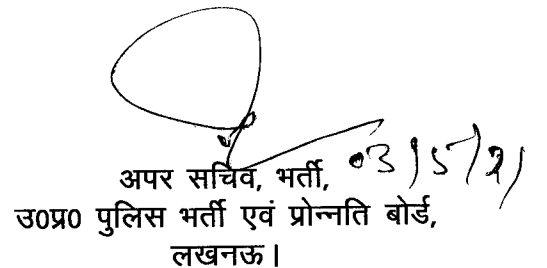 03/5/21
अपर सचिव, भर्ती,
उ0प्र0 पुलिस भर्ती एवं प्रोन्नति बोर्ड,
लखनऊ।